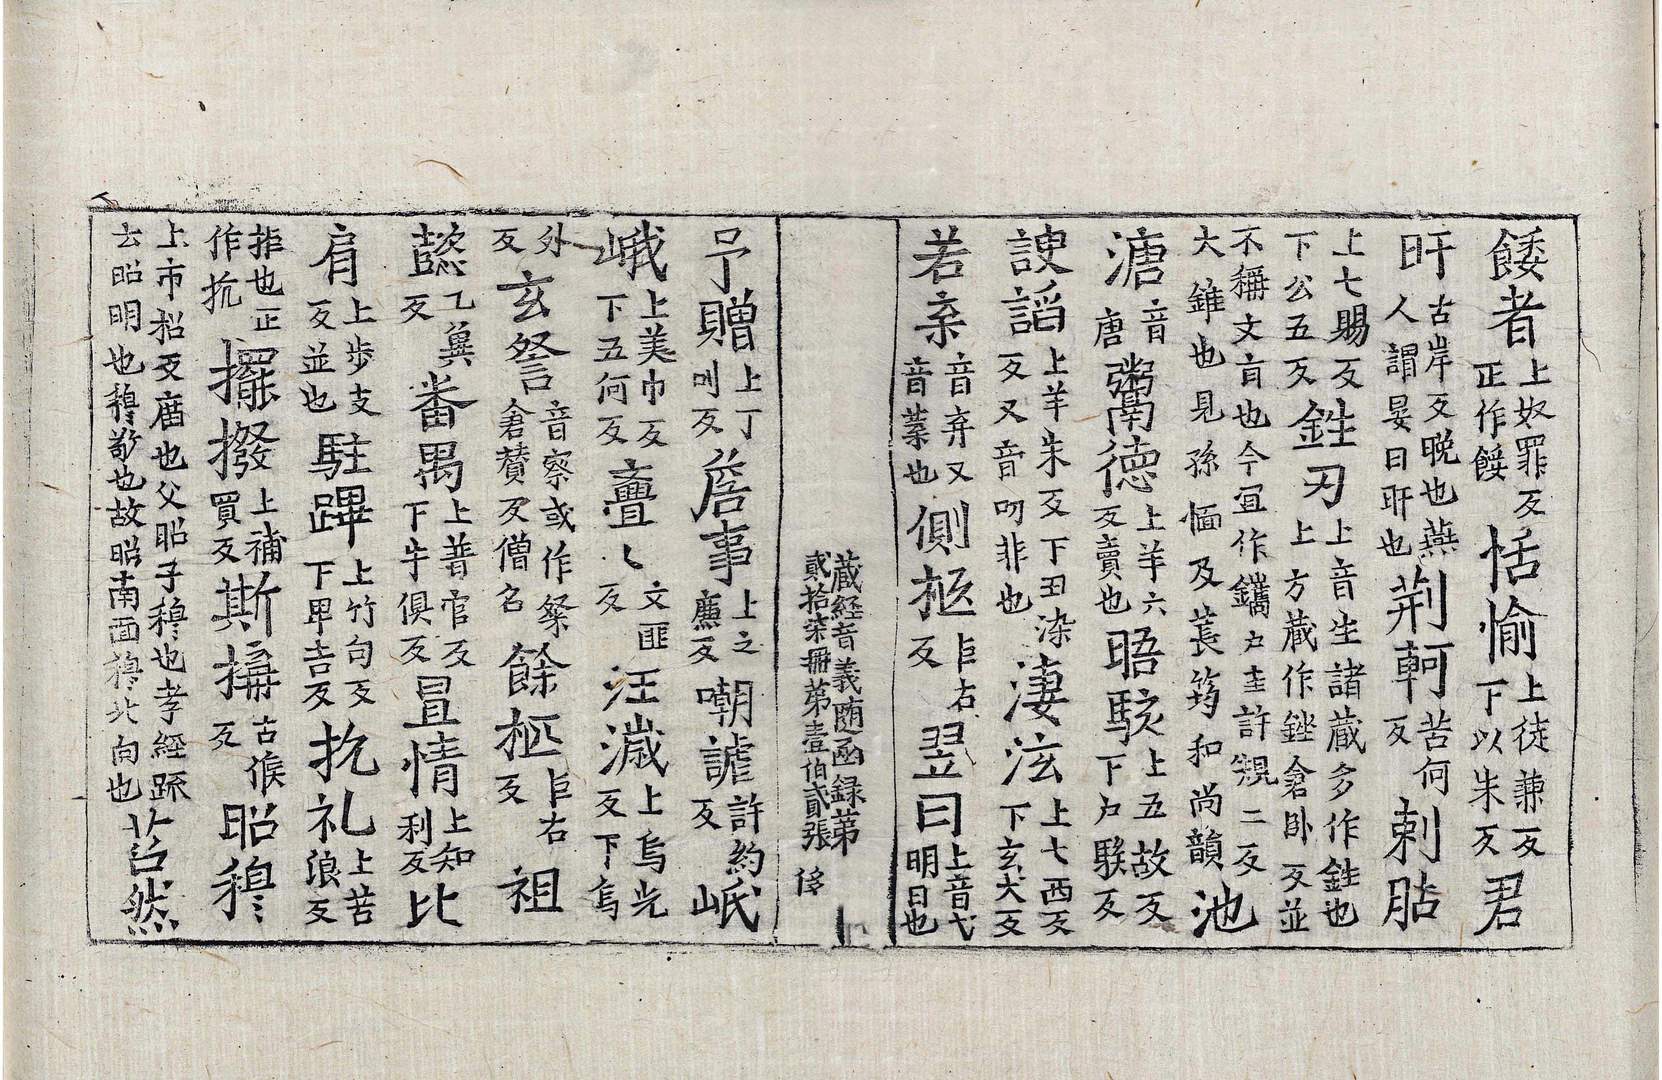 餧者上奴罪反正作餒恬愉上徒兼反下以朱反君
旰古岸反晚也燕人謂晏日旰也荆軻苦何反剌肐
上七賜反下公五反鉎刃上音生諸蔵多作鉎也上方蔵作銼倉卧反並
不稱文盲也今冝作鑴户圭許規二反大錐也見孫愐及萇筠和尚韻池
溏音唐鬻德上羊六反賣也晤駭上五故反下户騃反
諛謟上羊朱反下丑染反又音叨非也淒泫上七西反下玄犬反
若棄音弃又音蘂也側柩巨右反翌日上音弋明日也
蔵経音義随函録苐貳拾柒冊苐壹伯貳張 侈
予贈上丁叫反詹事上之廉反嘲謔許約反岷
峨上美巾反下五何反亹〻文匪反汪濊上烏光反下烏
外反玄詧音察或作粲倉賛反僧名餘柩巨右反祖
懿乙兾反番禺上普官反下牛俱反置情上知利反比
肩上歩支反並也駐蹕上竹句反下畢吉反扢礼上苦浪反
拒也正作抗擺撥上補買反斯搆古候反昭穆〻
上市招反庿也父昭子穆〻也孝經䟽云昭明也穆敬也故昭南面穆北向也苕然